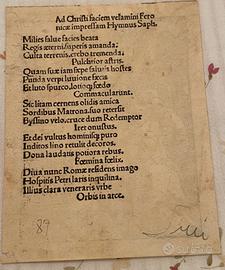 Ad Christi faciem velamini Fero
nicæ impressam Hymnus Saph.
Milies salue facies beata
Regis æterni, superis amanda:
Culta terrenis, erebo tremenda:
Pulchrior astris.
Quam suæ iam sæpe salutis hostes
Putida verpi luuione fœcis
Et luto spurco, lotioq; fœdo
Commacularunt.
Sic litam cernens olidis amica
Sordibus Matrona, suo retersit
Byssino velo, cruce dum Redemptor
Iret onustus.
Et dei vultus hominisq; puro
Inditos lino retulit decoros.
Dona laudatis potiora rebus.
Fœmina fœlix.
Diua nunc Romæ residens imago
Hospitis Petri laris inquilina.
Illius clara veneraris vrbe
Orbis in arce.
89
subito.it